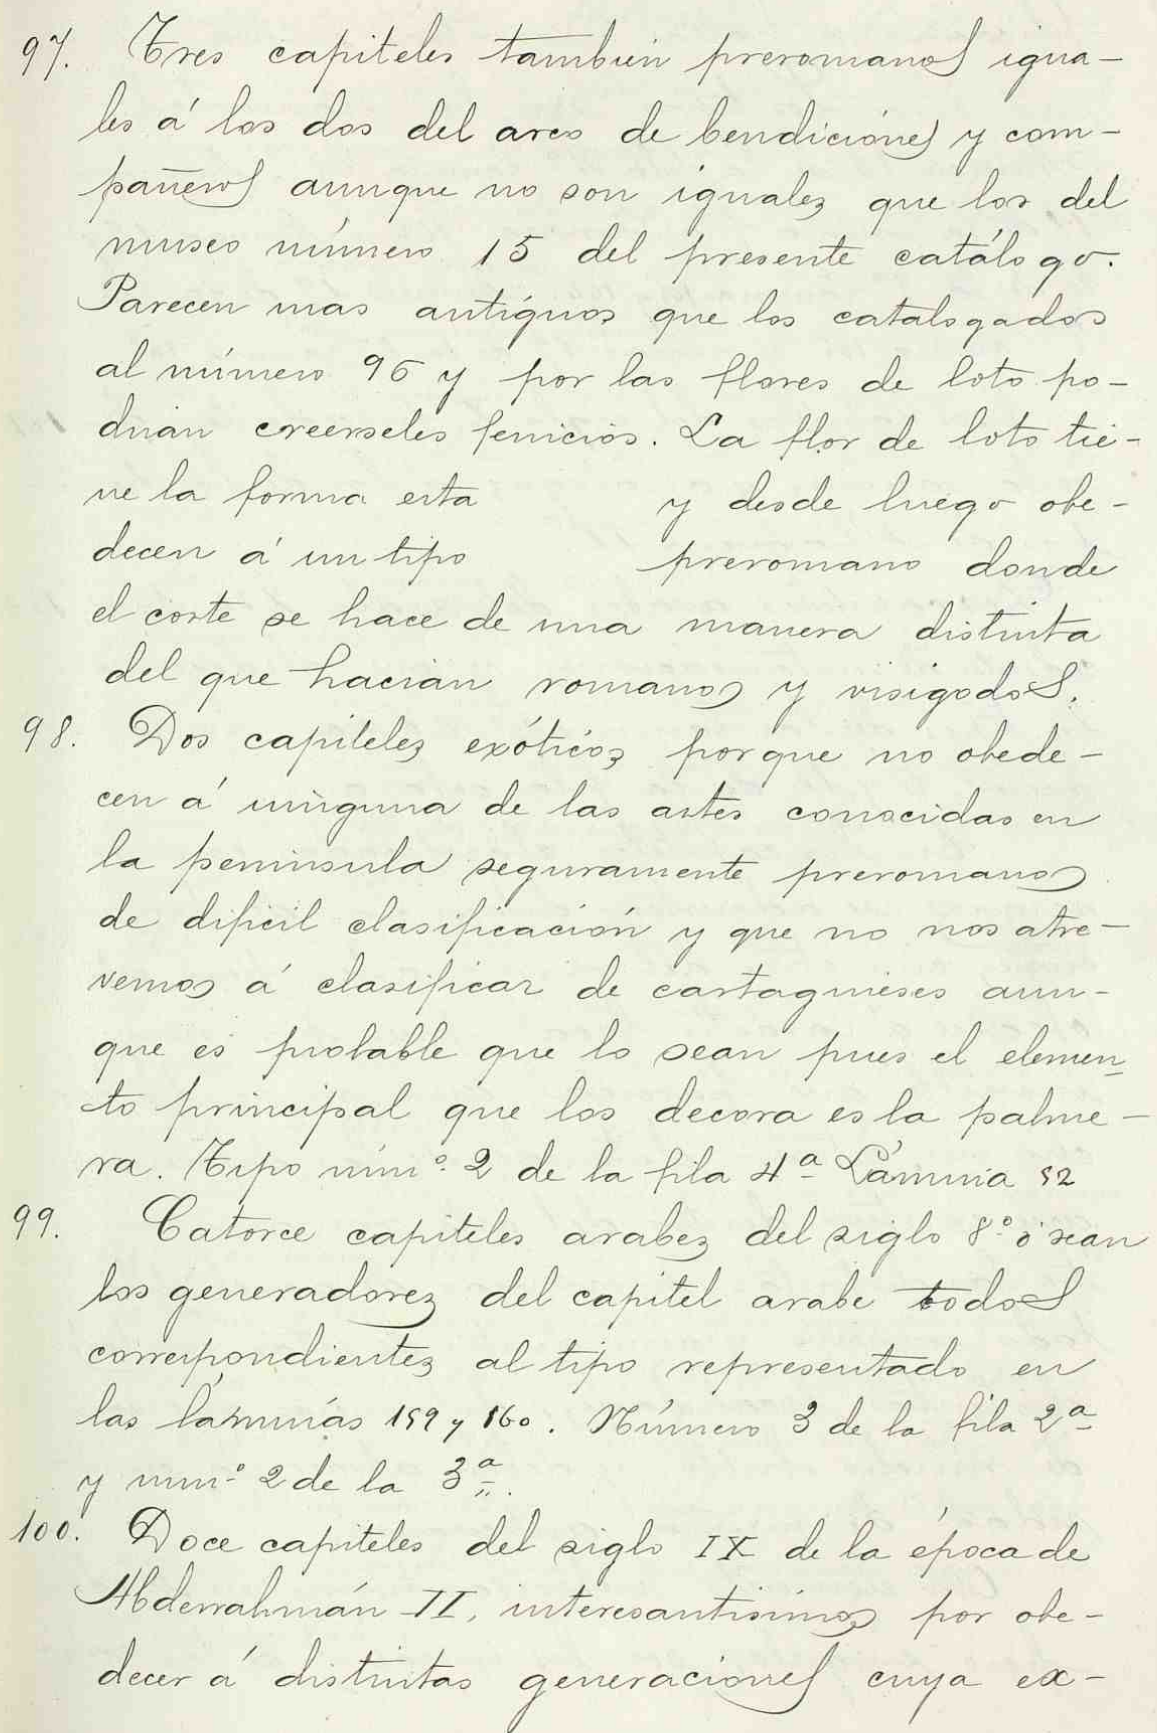 97. Tres capiteles tambien preromanos igua-
les á los dos del arco de bendiciónes y com-
pañeros aunque no son iguales que los del
museo número 15 del presente catálogo.
Parecen mas antíguos que los catalogados
al número 96 y por las flores de loto po-
drian creerseles fenicios. La flor de loto tie-
ne la forma esta y desde luego obe-
decen á un tipo preromano donde
el corte se hace de una manera distinta
del que hacian romanos y visigodos.
98. Dos capiteles exóticos porque no obede-
cen á ninguna de las artes conocidas en
la peninsula seguramente preromanos
de dificil clasificación y que no nos atre-
vemos á clasificar de cartagineses aun-
que es probable que lo sean pues el elemen-
to principal que los decora es la palme-
ra. Tipo núm.º 2 de la fila 4ª Lámina 52
99. Catorce capiteles arabes del siglo 8.º ó sean
los generadores del capitel arabe todos
correspondientes al tipo representado en
las láminas 159 y 160. Número 3 de la fila 2ª
y num.º 2 de la 3ª.
100. Doce capiteles del siglo IX de la época de
Abderrahmán II, interesantisimos por obe-
decer á distintas generaciones cuya ex-